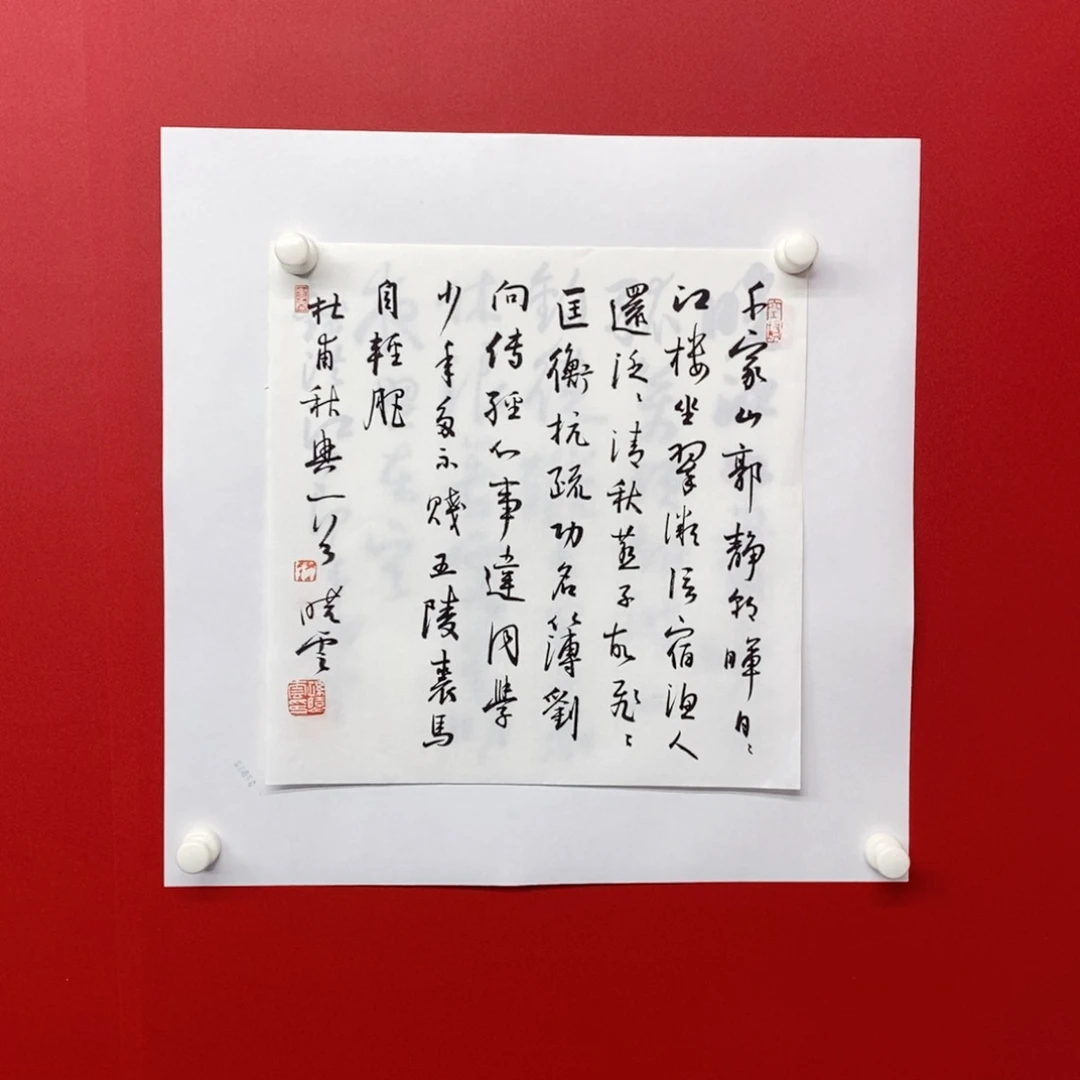 千家山郭靜朝暉日〻
江楼坐翠微信宿渔人
還泛〻清秋燕子故飛〻
匡衡抗疏功名簿劉
向傳經心事違同學
少年多不賤五陵裘馬
自輕肥
杜甫秋興一首
曉雲